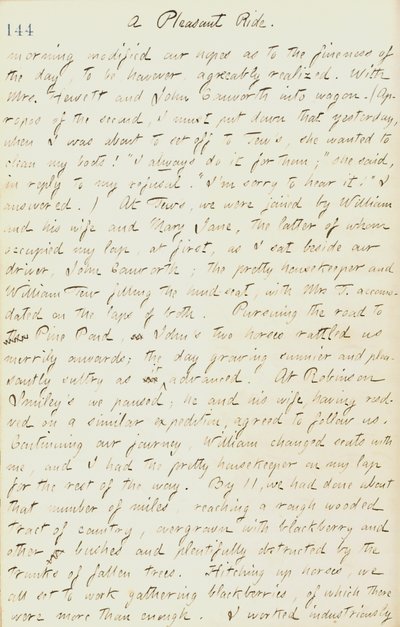 A Pleasant Ride.
144
morning modified our hopes as to the fineness of
the day, to be however agreably realized. With
Mrs. Hewett and John Conworth into wagon. (Ap-
ropos of the second, I must put down that yesterday,
when I was about to set off to Tew's, she wanted to
clean my boots! "I always do it for them;" she said,
in reply to my refusal. "I'm sorry to hear it!" I
answered.) At Tews, we were joined by William
and his wife and Mary Jane, the latter of whom
occupied my lap, at first, as I sat beside our
driver, John Conworth; the pretty housekeeper and
William Tew filling the hind seat, with Mrs T. accomo-
dated on the laps of both. Pursuing the road to
Pine Pond, John's two horses rattled us
merrily onwards; the day growing sunnier and plea-
santly sultry as advanced. At Robinson
Smiley's we paused; he and his wife having resol-
ved on a similar expedition, agreed to follow us.
Continuing our journey, William changed seats with
me, and I had the pretty housekeeper on my lap
for the rest of the way. By 11, we had done about
that number of miles, reaching a rough wooded
tract of country, overgrown with blackberry and
other bushes and plentifully obstructed by the
trunks of fallen trees. Hitching up horses, we
all set to work gathering blackberries, of which there
were more than enough. I worked industriously